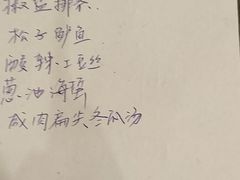 椒盐排条
松子鲈鱼
酸辣土豆丝
葱油海蜇
咸肉扁尖冬瓜汤